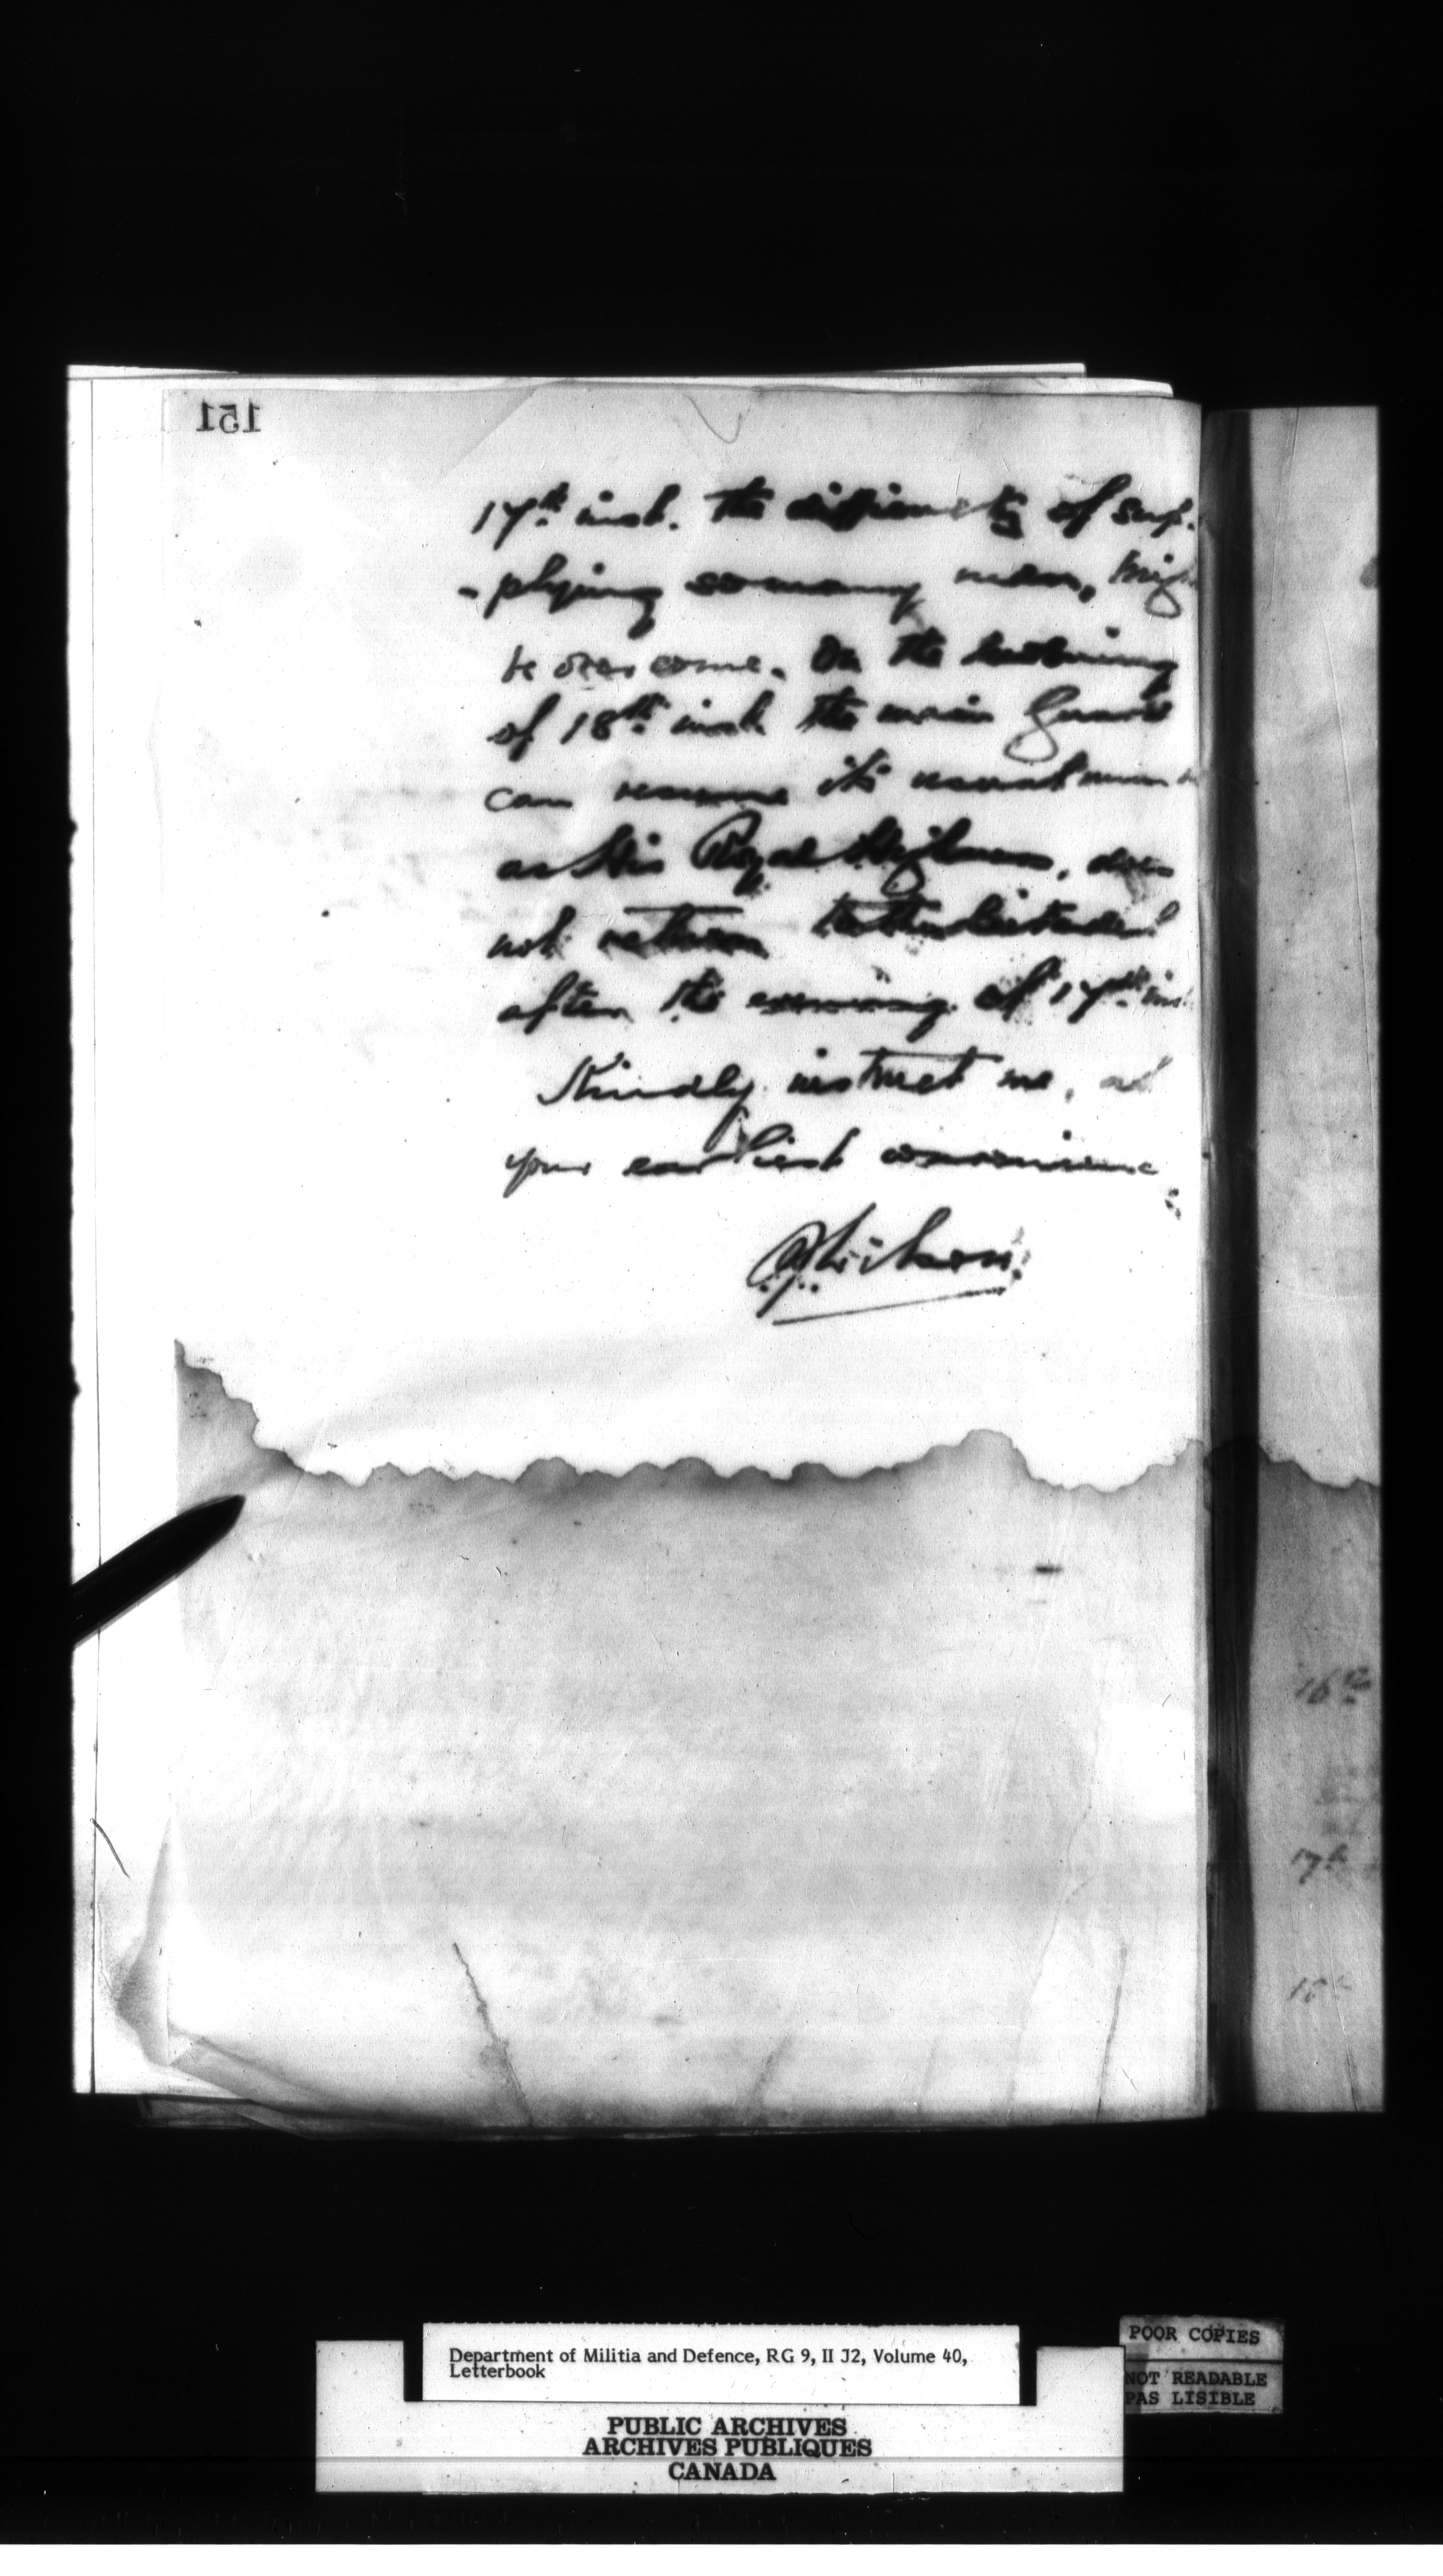 151
17th inst. the difficulty of sup-
-plying so many men, might
be overcome. On the morning
of 18th inst the main Guard
can resume its usual
as His Royal Highness, does
not return to the Citadel
after the evening of 17th inst
Kindly instruct me, at
your earliest convenience
16th
17th
18th
Department of Militia and Defence, RG 9, II J2, Volume 40,
Letterbook
PUBLIC ARCHIVES
ARCHIVES PUBLIQUES
CANADA
POOR COPIES
NOT READABLE
PAS LISIBLE